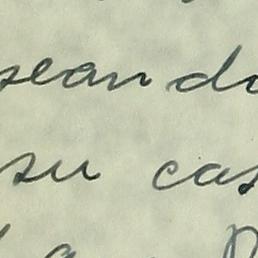 seando
su cas